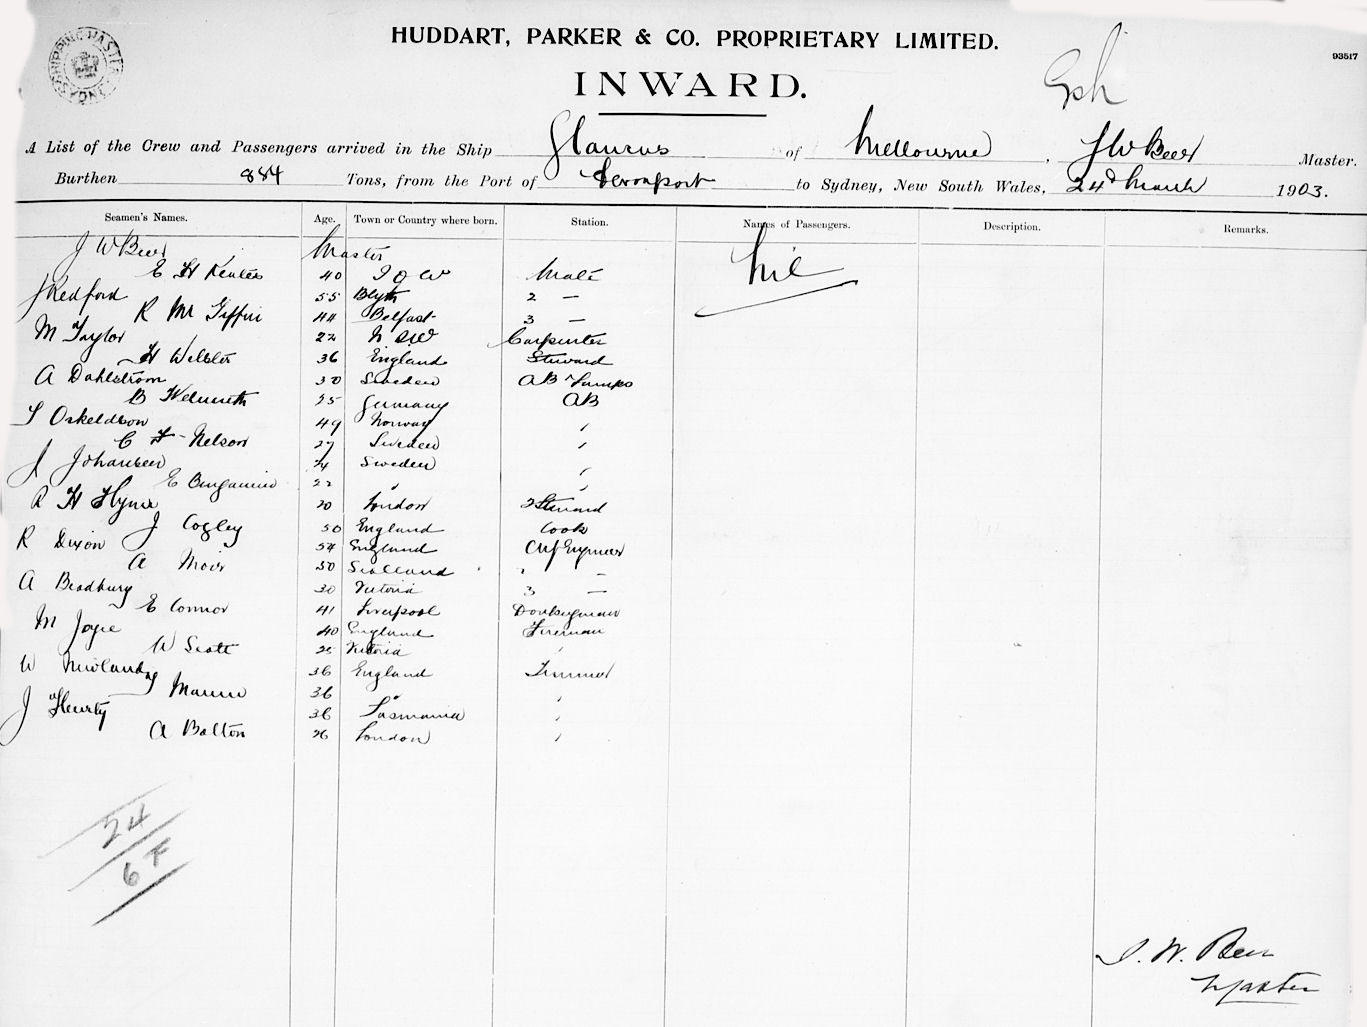 SHIPPING MASTER SYDNEY
HUDDART, PARKER & CO. PROPRIETARY LIMITED.
93517
INWARD.
A List of the Crew and Passengers arrived in the Ship Glaucus of Melbourne, J W Beer Master.
Burthen 884 Tons, from the Port of Devonport to Sydney, New South Wales, 24th March 1903.
Seamen's Names. Age. Town or Country where born. Station. Names of Passengers. Description. Remarks.
J W Beer Master Nil
E H 40 I O W Mate
J Redford 55 Blyth 2 —
R Mc Giffin 44 Belfast 3 —
M Taylor 22 N S W Carpenter
H Webster 36 England Steward
A Dahlstrom 30 Sweden AB Lamps
B Helmuth 25 Germany AB
49 Norway "
C F Nelson 27 Sweden "
J 24 Sweden "
E Bengamin 22 " "
R H 20 London 2 Steward
J Cogley 50 England Cook
R Dixon 54 England Chf Engineer
A Moir 50 Scotland 2 —
A Bradbury 30 Victoria 3 —
E Connor 41 Liverpool Donkeyman
M Joyce 40 England Fireman
W Scott 25 Victoria "
W Newland 36 England Trimmer
36 " "
J 36 Tasmania "
A Bolton 26 London "
24
6 F
J. W. Beer
Master